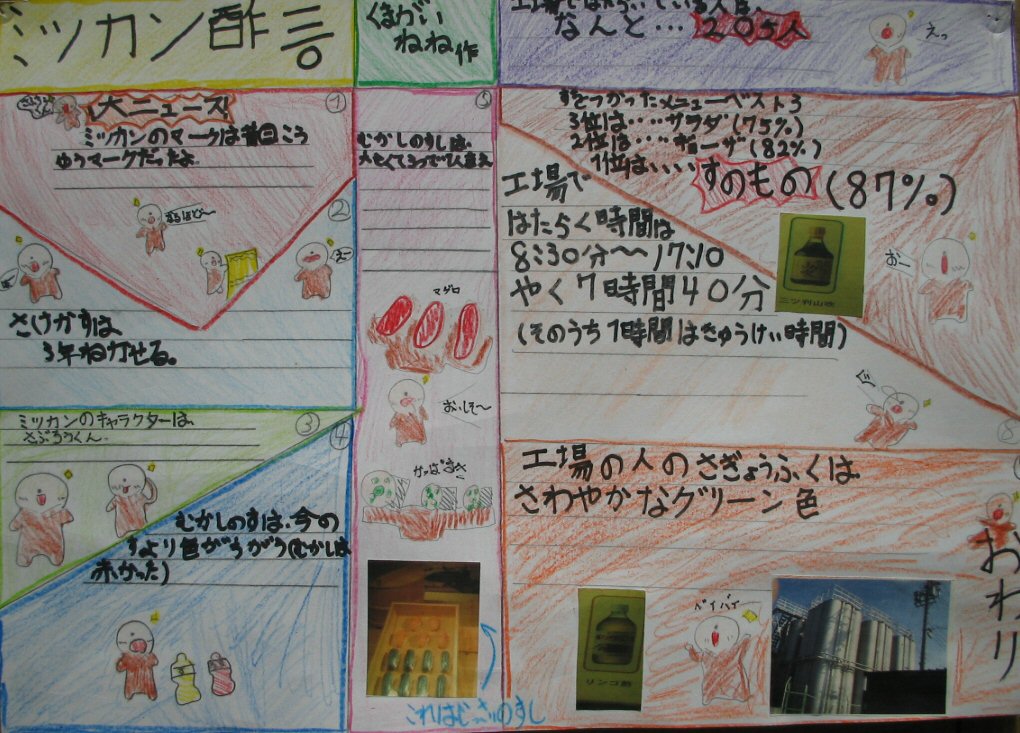 ミツカン酢言
くまがい
ねね作
なんと…205人
えっ
①
大ニュース
ミッカンのマークは昔日こう
ゆうマークだったよ。
なるほど〜
②
えー
さけかすは
3年ねかせる。
③
ミツカンのキャラクターは、
さぶろうくん
④
むかしのすは、今の
すより色がちがう(むかしは
赤かった)
⑤
むかしのすしは、
マグロ
おいしそ〜
かっぱまき
これはじっさいのすし
すをつかったメニューベスト3
3位は‥‥サラダ(75%)
2位は‥‥ギョーザ(82%)
1位は‥‥すのもの(87%)
おー
工場で
はたらく時間は
8:30分〜17:10
やく7時間40分
(そのうち1時間はきゅうけい時間)
工場の人のさぎょうふくは
さわやかなグリーン色
リンゴ酢
バイバイ
おわり